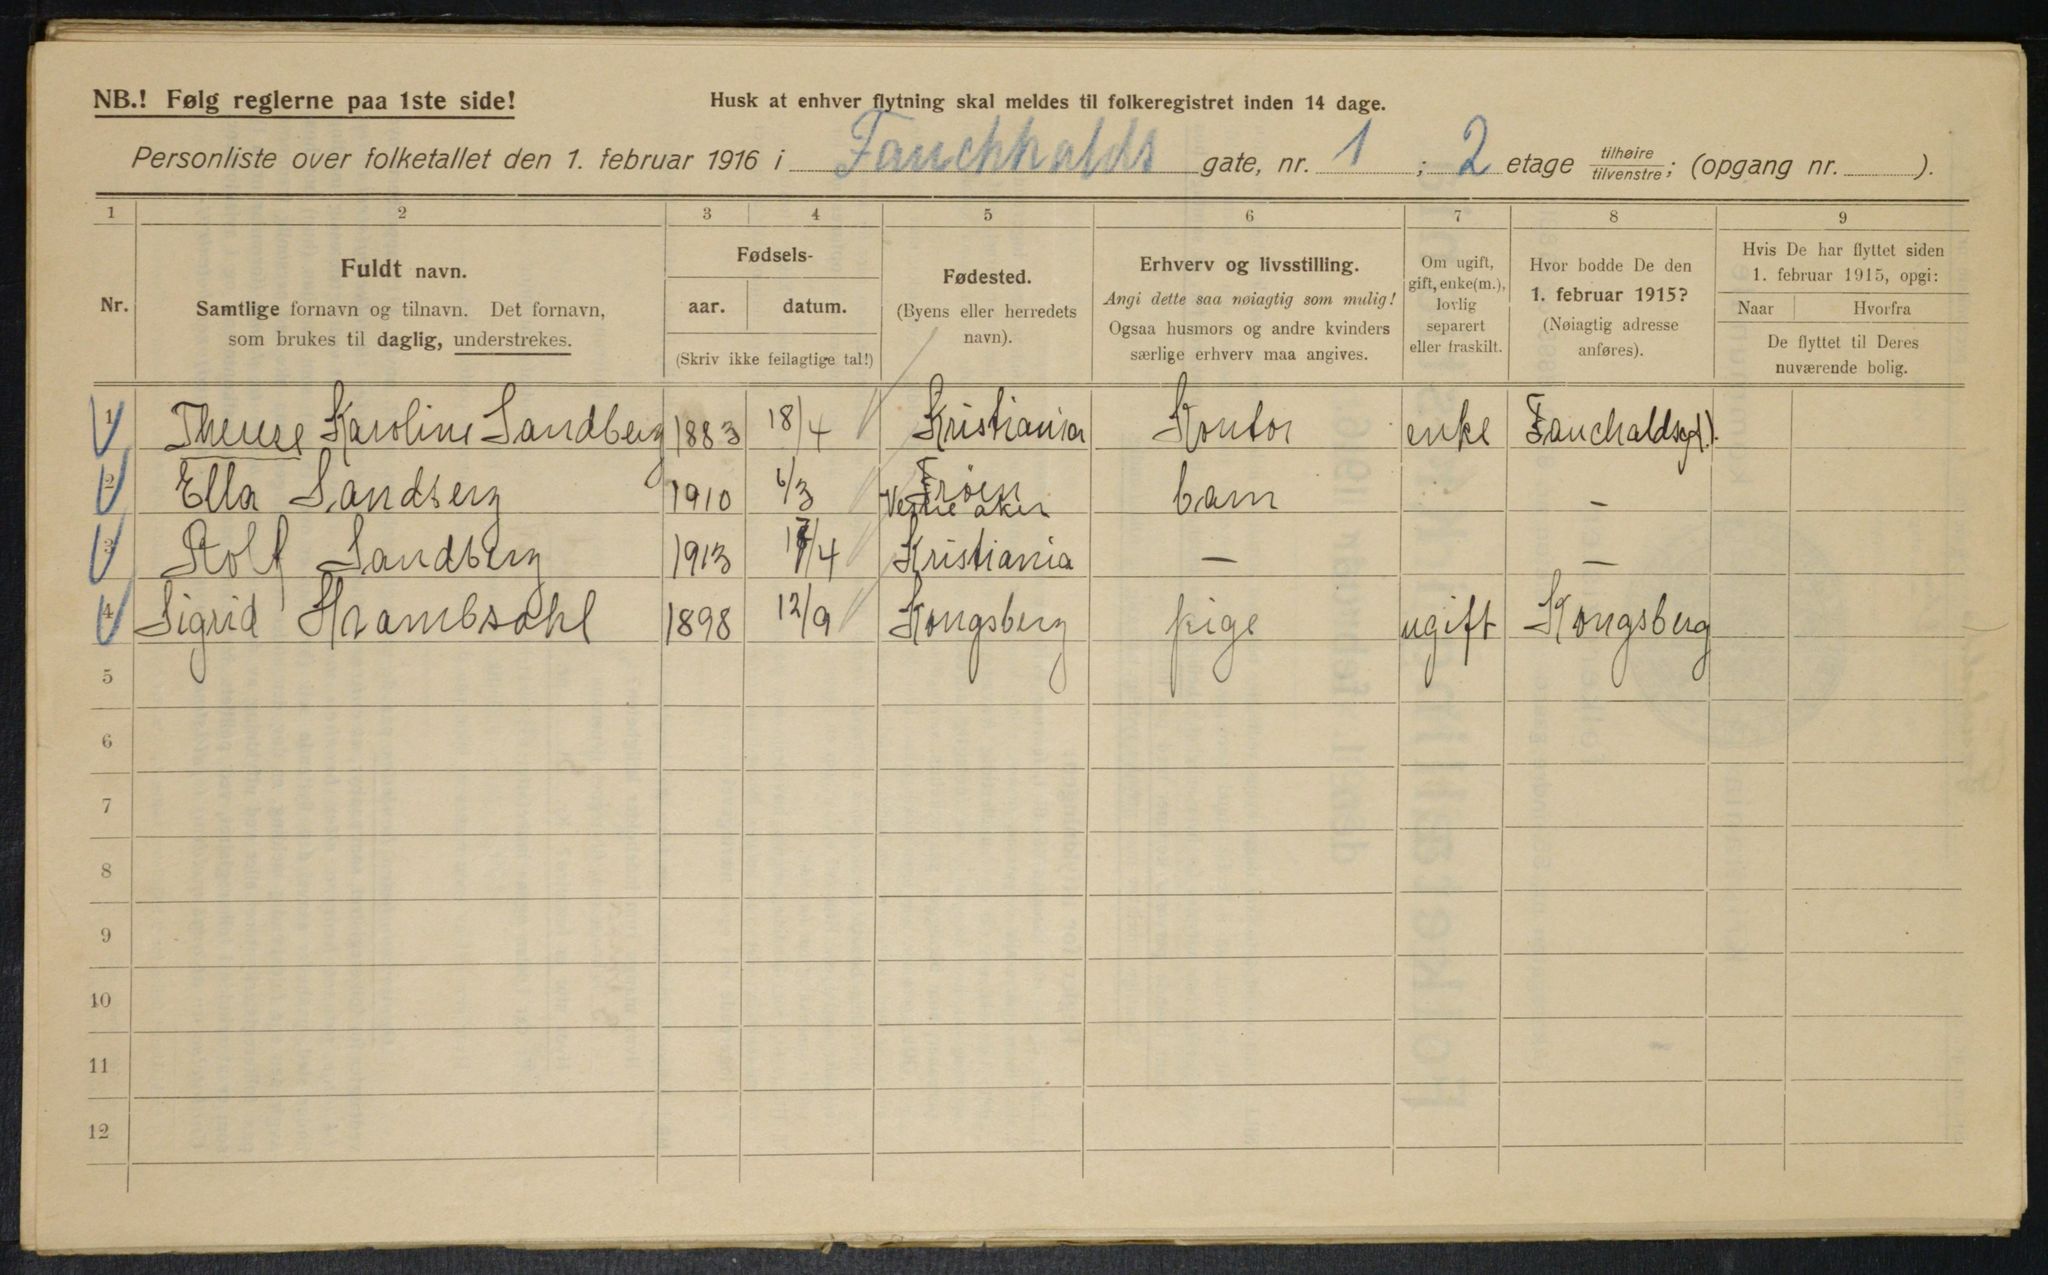 NB.! Følg reglerne paa 1ste side!
Husk at enhver flytning skal meldes til folkeregistret inden 14 dage.
Personliste over folketallet den 1. februar 1916 i Fauchhalds gate, nr. 1 ; 2 etage tilhøire/tilvenstre; (opgang nr. ).
1 2 3 4 5 6 7 8 9
Nr.
Fuldt navn.
Samtlige fornavn og tilnavn. Det fornavn,
som brukes til daglig, understrekes.
Fødsels-
aar. datum.
(Skriv ikke feilagtige tal!)
Fødested.
(Byens eller herredets
navn).
Erhverv og livsstilling.
Angi dette saa nøiagtig som mulig!
Ogsaa husmors og andre kvinders
særlige erhverv maa angives.
Om ugift,
gift, enke(m.),
lovlig
separert
eller fraskilt.
Hvor bodde De den
1. februar 1915?
(Nøiagtig adresse
anføres).
Hvis De har flyttet siden
1. februar 1915, opgi:
Naar Hvorfra
De flyttet til Deres
nuværende bolig.
1 Therese Karoline Sandberg 1883 18/4 Kristiania Kontor enke Fauchaldsgt. 1.
2 Ella Sandberg 1910 6/3 Frøen Vestre aker barn –
3 Rolf Sandberg 1913 17/4 Kristiania – –
4 Sigrid Hrambsahl 1898 12/9 Kongsberg pige ugift Kongsberg
5
6
7
8
9
10
11
12